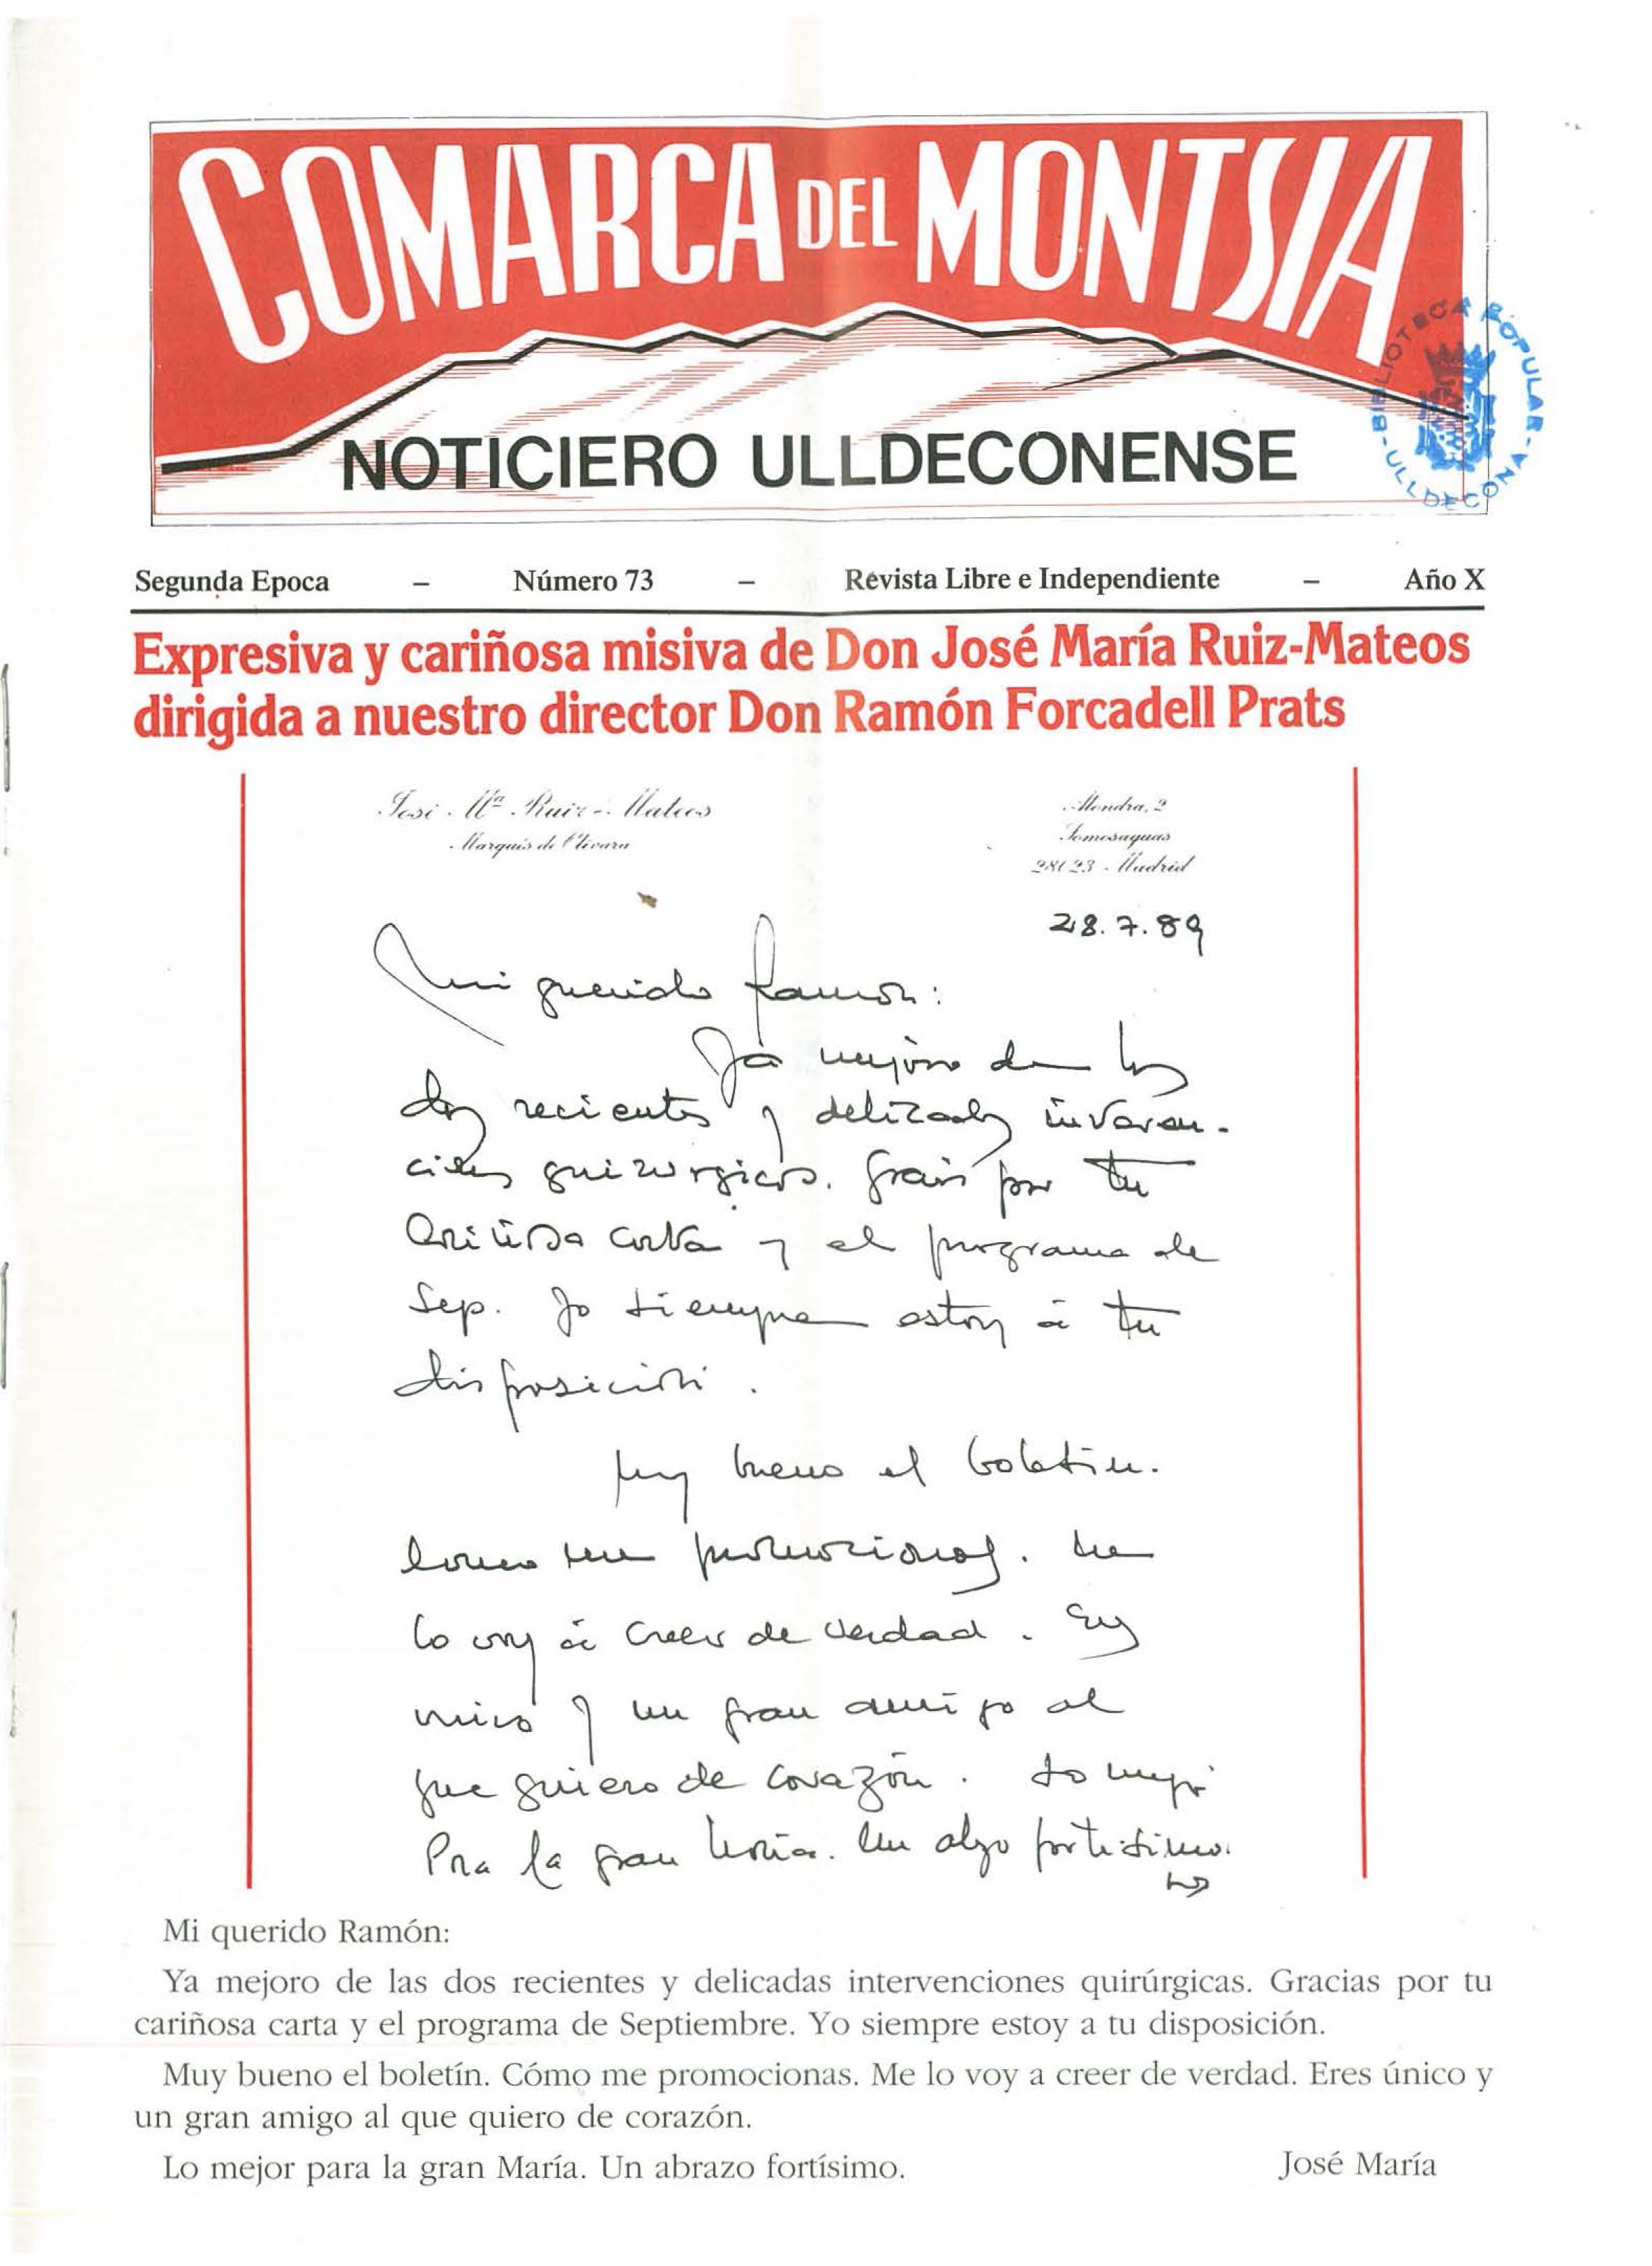 COMARCA DEL MONTSIA
NOTICIERO ULLDECONENSE
BIBLIOTECA POPULAR - ULLDECONA -
Segunda Epoca – Número 73 – Revista Libre e Independiente – Año X
Expresiva y cariñosa misiva de Don José María Ruiz-Mateos
dirigida a nuestro director Don Ramón Forcadell Prats
José Mª Ruiz-Mateos
Marqués de Olivara
Alondra, 2
Somosaguas
28023 - Madrid
28.7.89
Mi querido Ramón:
Ya mejoro de las
dos recientes y delicadas interven-
ciones quirurgicas. Gracias por tu
cariñosa carta y el programa de
Sep. Yo siempre estoy a tu
disposición.
Muy bueno el boletin.
Como me promocionas. Me
lo voy a creer de verdad. Eres
único y un gran amigo al
que quiero de corazón. Lo mejor
Para la gran María. Un abzo fortisimo.
Mi querido Ramón:
Ya mejoro de las dos recientes y delicadas intervenciones quirúrgicas. Gracias por tu
cariñosa carta y el programa de Septiembre. Yo siempre estoy a tu disposición.
Muy bueno el boletín. Cómo me promocionas. Me lo voy a creer de verdad. Eres único y
un gran amigo al que quiero de corazón.
Lo mejor para la gran María. Un abrazo fortísimo. José María